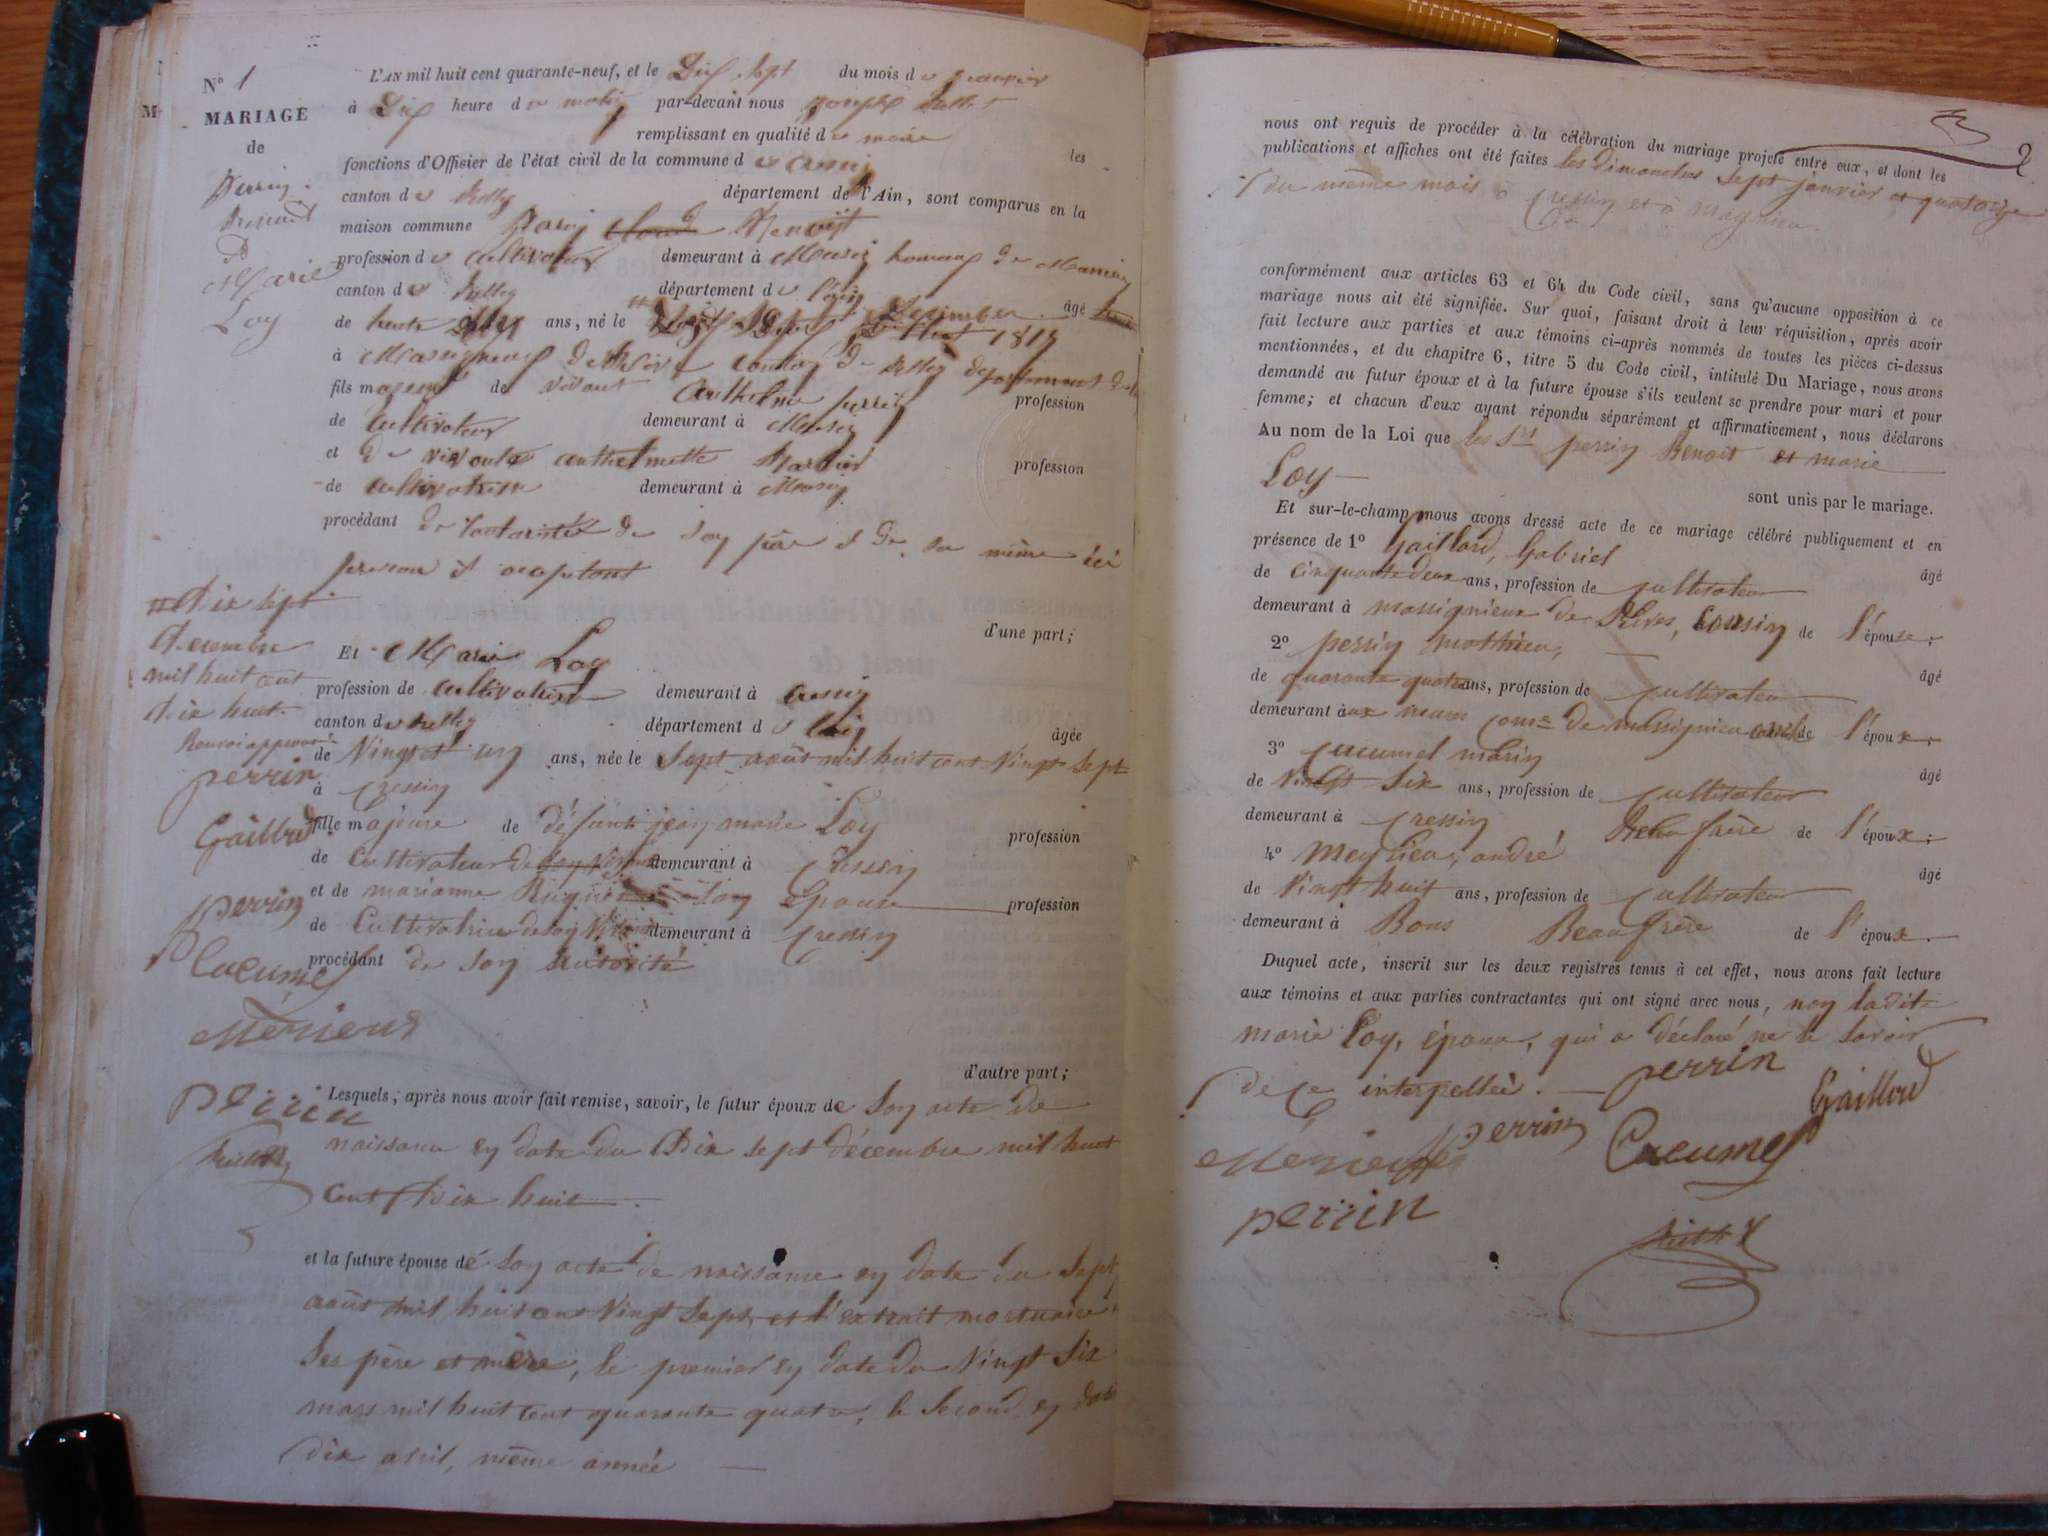 N° 1
MARIAGE
de
Perrin
Benoit
&
Marie
Loy
L'AN mil huit cent quarante-neuf, et le Dix sept du mois de janvier
à Dix heure du matin par-devant nous joseph
remplissant en qualité de maire les
fonctions d'Officier de l'état civil de la commune de Cressin
canton de Belley département de l'Ain, sont comparus en la
maison commune Perrin Benoit
profession de cultivateur demeurant à hameau de
canton de Belley département de l'ain âgé
de trente ans, né le Décembre 1818
à Massignieux de Rives canton de Belley département de
fils majeur de vivant Anthelme perrin profession
de Cultivateur demeurant à
et de vivante anthelmette profession
de cultivatrice demeurant à
procédant de l'autorité de son père et de sa mère ici
présents et acceptant
Dix sept
décembre
mil huit cent
dix huit.
Renvoi approuvé
perrin
Gaillard
perrin
Cucumel
perrin
d'une part;
Et Marie Loy
profession de cultivatrice demeurant à Cressin
canton de Belley département de l'ain âgée
de Vingt et un ans, née le Sept août mil huit cent Vingt sept
à Cressin
fille majeure de défunt jean marie Loy profession
de Cultivateur de son vivant demeurant à Cressin
et de marianne son Epouse profession
de Cultivatrice de son vivant demeurant à Cressin
procédant de son autorité
d'autre part;
Lesquels, après nous avoir fait remise, savoir, le futur époux de son acte de
naissance en date du Dix sept décembre mil huit
cent Dix huit
et la future épouse de son acte de naissance en date du sept
août mil huit cent Vingt sept, et l'extrait mortuaire
ses père et mère, le premier en date du Vingt six
mars mil huit cent quarante quatre, le second en date
dix avril, même année
2
nous ont requis de procéder à la célébration du mariage projeté entre eux, et dont les
publications et affiches ont été faites les Dimanches sept janvier et quatorze
du même mois à Cressin et à
conformément aux articles 63 et 64 du Code civil, sans qu'aucune opposition à ce
mariage nous ait été signifiée. Sur quoi, faisant droit à leur réquisition, après avoir
fait lecture aux parties et aux témoins ci-après nommés de toutes les pièces ci-dessus
mentionnées, et du chapitre 6, titre 5 du Code civil, intitulé Du Mariage, nous avons
demandé au futur époux et à la future épouse s'ils veulent se prendre pour mari et pour
femme; et chacun d'eux ayant répondu séparément et affirmativement, nous déclarons
Au nom de la Loi que les Srs perrin Benoit et marie
Loy
sont unis par le mariage.
Et sur-le-champ nous avons dressé acte de ce mariage célébré publiquement et en
présence de 1° Gaillard, Gabriel âgé
de cinquante deux ans, profession de cultivateur
demeurant à massignieux de Rives, cousin de l'épouse;
2° perrin mathieu, âgé
de quarante quatre ans, profession de cultivateur
demeurant aux Come de massignieu oncle de l'époux;
3° Cucumel marin âgé
de Vingt Six ans, profession de cultivateur
demeurant à Cressin Beau frère de l'époux;
4° andré âgé
de Vingt huit ans, profession de cultivateur
demeurant à Bons Beau frère de l'époux.
Duquel acte, inscrit sur les deux registres tenus à cet effet, nous avons fait lecture
aux témoins et aux parties contractantes qui ont signé avec nous, non ladite
marie Loy, épouse, qui a déclaré ne le savoir
de ce interpellée. perrin
Gaillard
perrin Cucumel
perrin